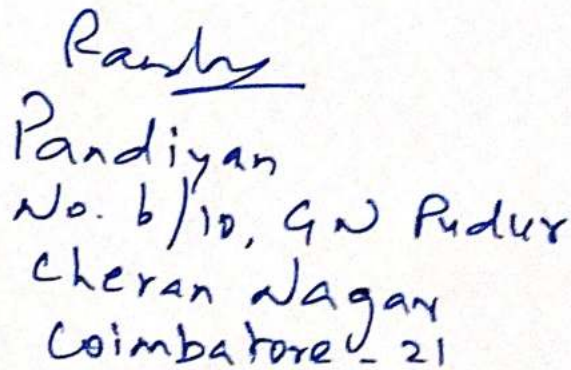 Pandiyan
No. 6/10, GN Pudur
Cheran Nagar
Coimbatore - 21